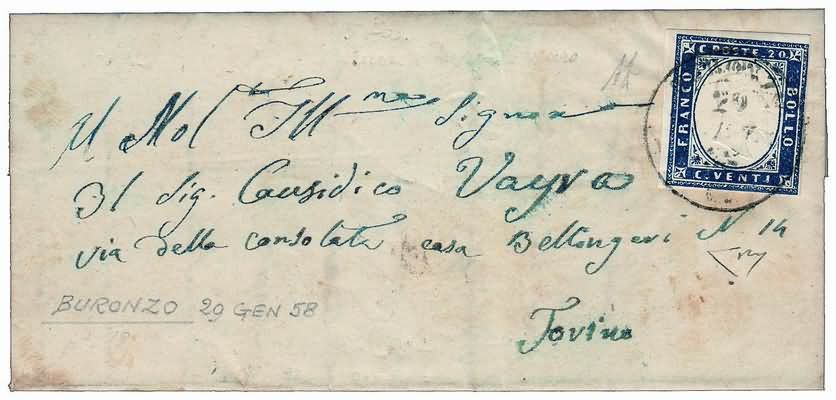 C. POSTE. 20.
FRANCO
BOLLO
C. VENTI
29
Al Mol' Ill.mo Signore
Il Sig. Causidico Vayra
via della consolata casa Beltongeri N. 14
Torino
BURONZO 29 GEN 58